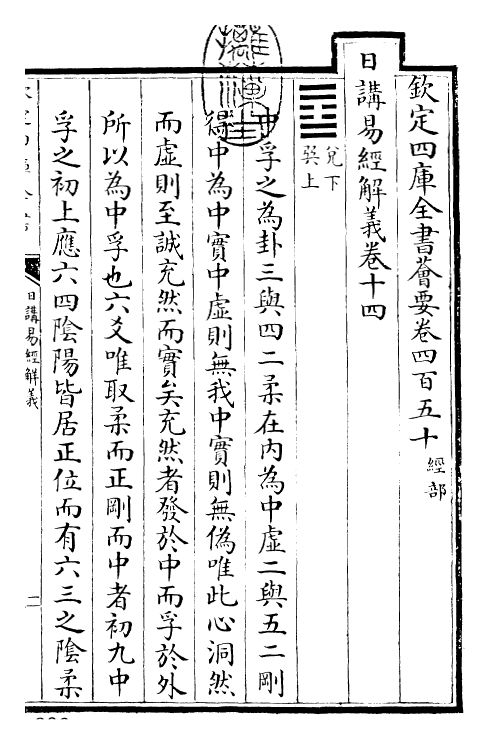 欽定四庫全書薈要卷四百五十
經部
日講易經解義卷十四
兌下
巽上
中孚之為卦三與四二柔在內為中虛二與五二剛
得中為中實中虛則無我中實則無偽唯此心洞然
而虛則至誠充然而實矣充然者發於中而孚於外
所以為中孚也六爻唯取柔而正剛而中者初九中
孚之初上應六四陰陽皆居正位而有六三之陰柔
日講易經解義